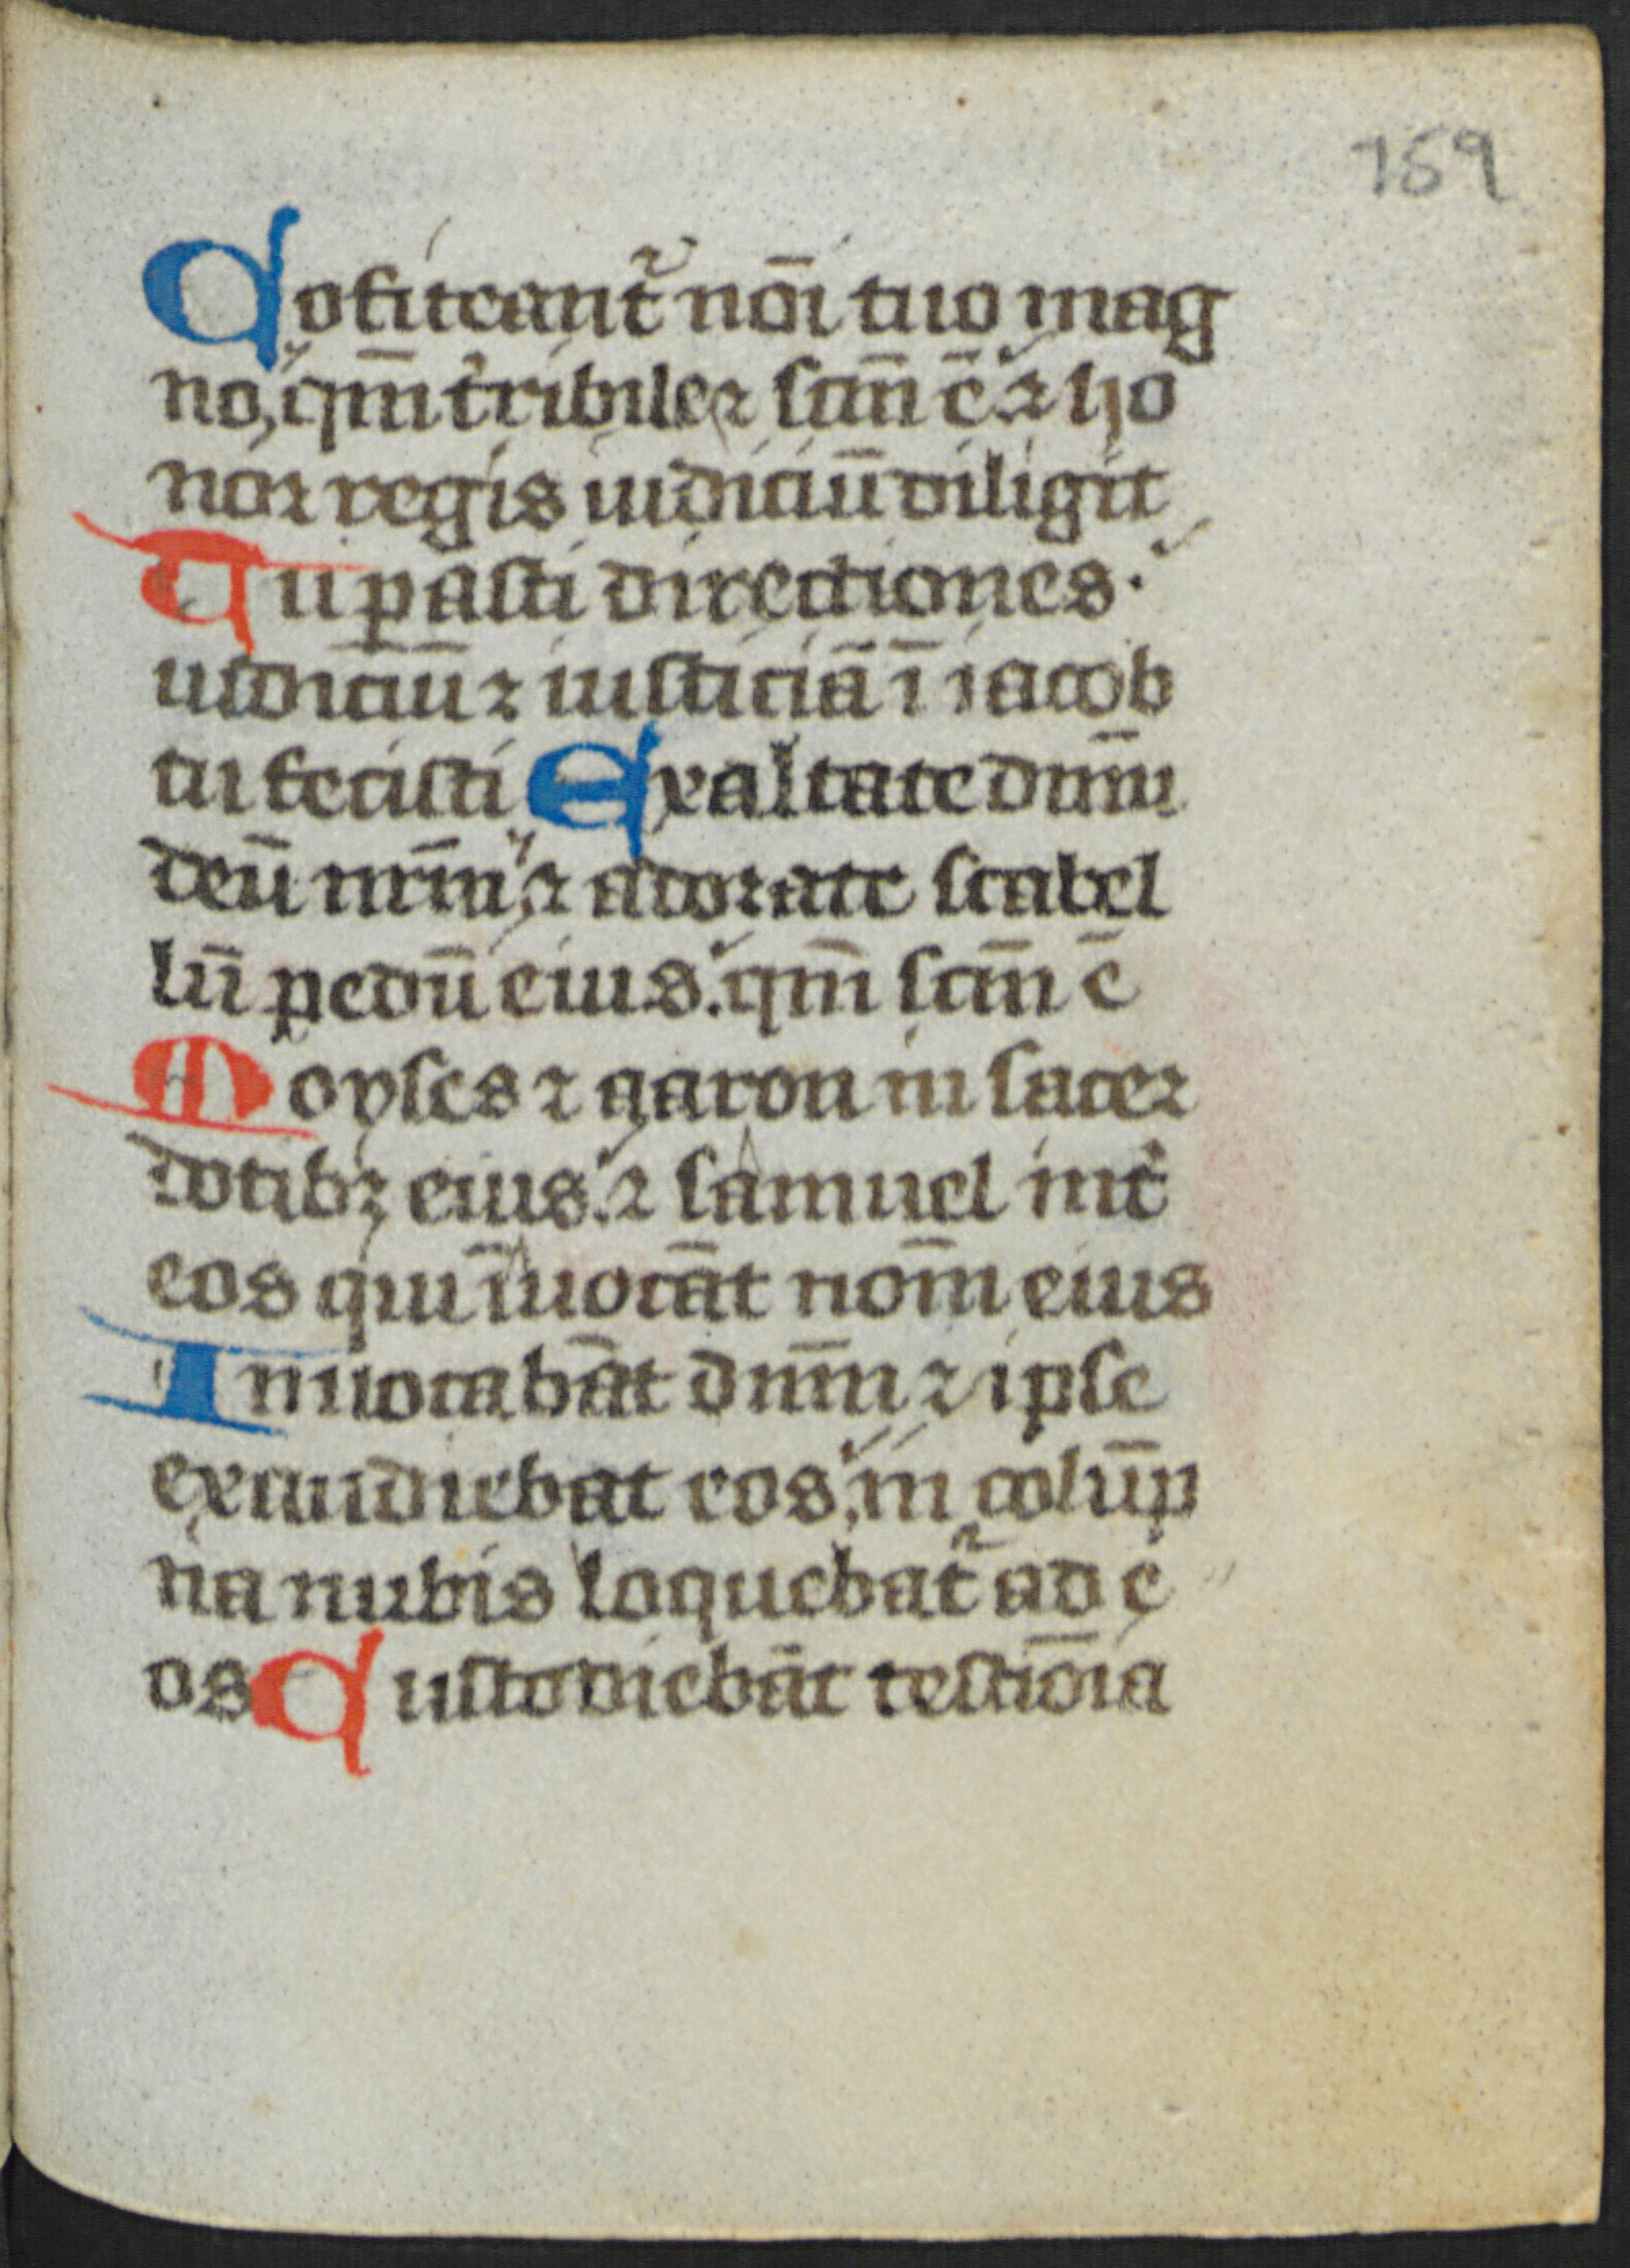 159
Cofiteant᷑ noı̄ tuo mag
no, qm̄ t̉ribile ⁊ scm̄ ē ⁊ ho
nor regis iudiciū diligit
Tu parasti directiones.
iudiciū ⁊ iusticiā ī iacob
tu fecisti Exaltate dnm̄
deū nrm̄ ⁊ adorate scabel
lū pedū eius. qm̄ scm̄ ē
Moyses ⁊ aaron in sacer
dotibꝫ eius. ⁊ samuel int̉
eos qui īuocāt nom̄ eius
Inuocabāt dnm̄ ⁊ ipse
exaudiebat eos, in colūp
na nubis loquebat᷑ ad e
os Custodiebāt testio̅ia